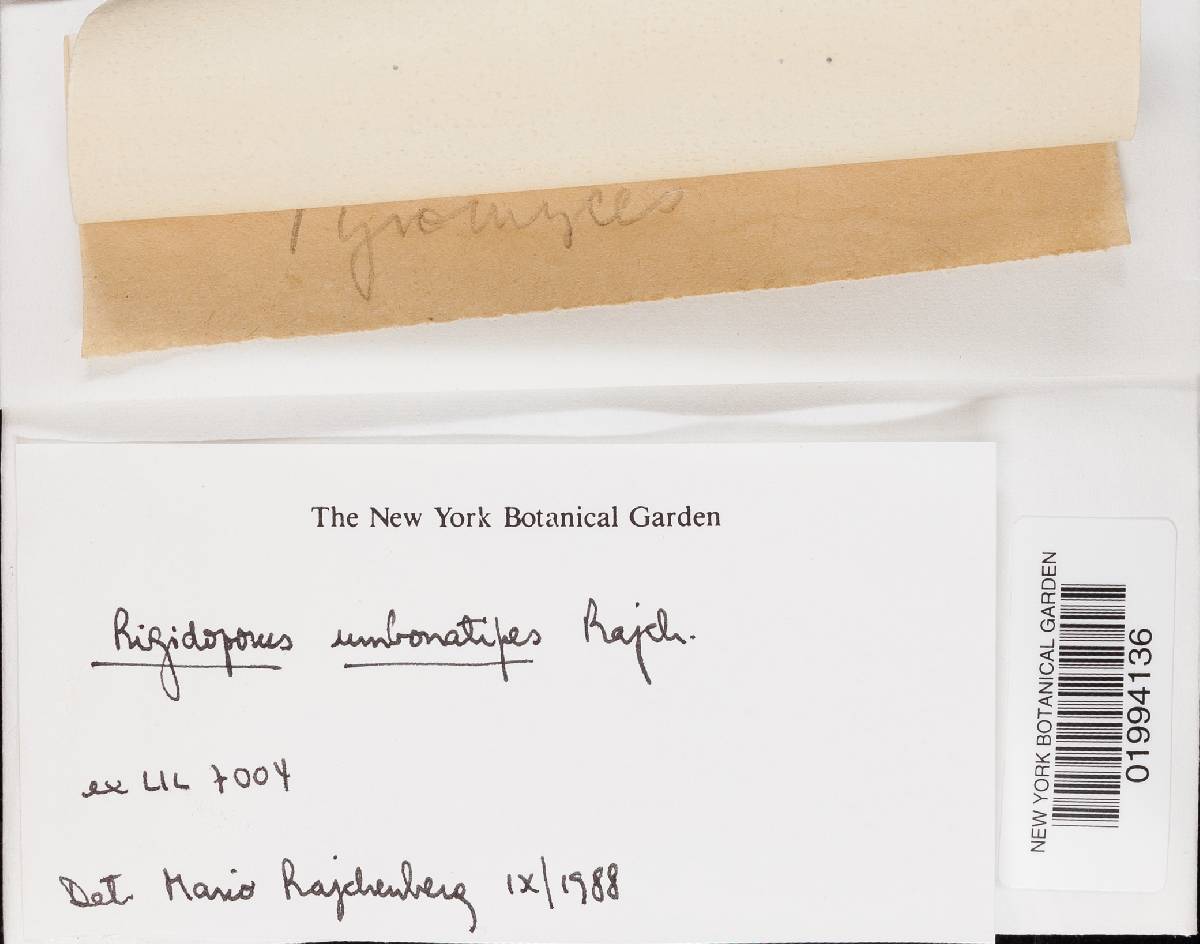 Tyromyces
The New York Botanical Garden
Rigidoporus umbonatipes Rajch.
ex LIL 7004
Det. Mario Rajchenberg IX/1988
NEW YORK BOTANICAL GARDEN
01994136